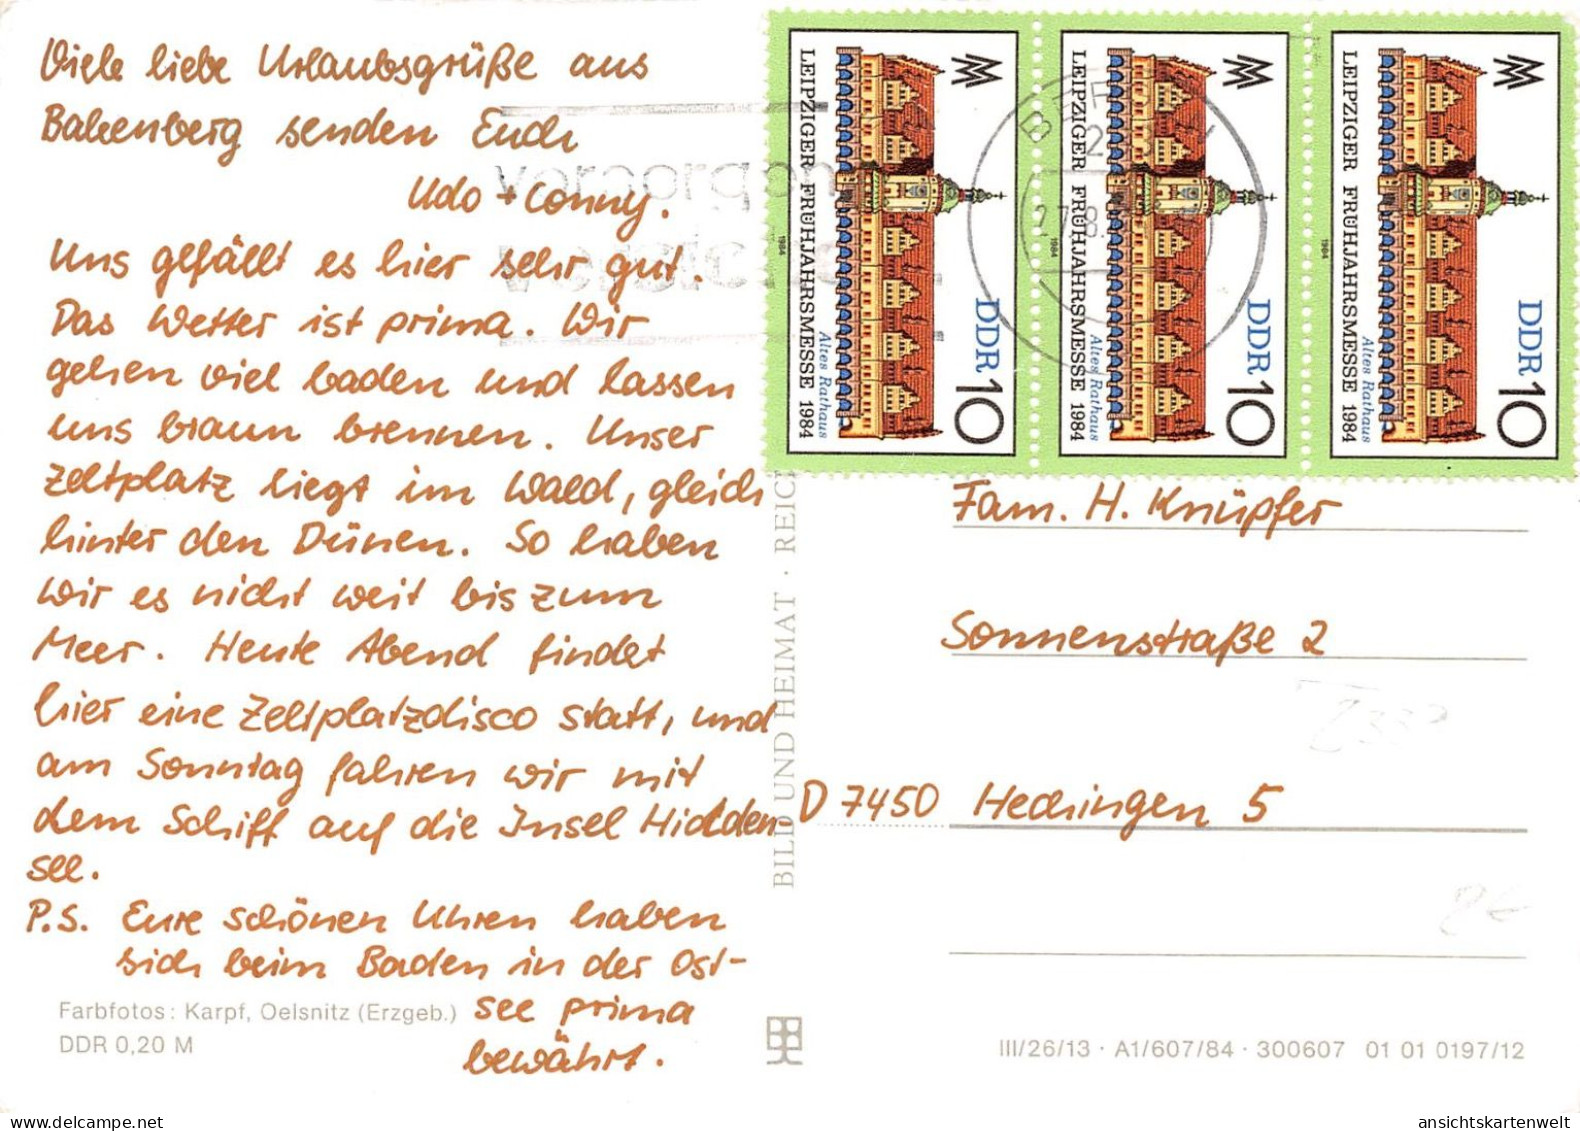 Viele liebe Urlaubsgrüße aus
Bakenberg senden Euch
Udo + Conny.
Uns gefällt es hier sehr gut.
Das Wetter ist prima. Wir
gehen viel baden und lassen
uns braun brennen. Unser
Zeltplatz liegt im Wald, gleich
hinter den Dünen. So haben
wir es nicht weit bis zum
Meer. Heute Abend findet
hier eine Zeltplatzdisco statt, und
am Sonntag fahren wir mit
dem Schiff auf die Insel Hidden
see.
P.S. Eure schönen Uhren haben
sich beim Baden in der Ost-
see prima
bewährt.
Farbfotos: Karpf, Oelsnitz (Erzgeb.)
DDR 0,20 M
BILD UND HEIMAT · REICH
LEIPZIGER FRÜHJAHRSMESSE 1984
Altes Rathaus
DDR 10
1984
LEIPZIGER FRÜHJAHRSMESSE 1984
Altes Rathaus
DDR 10
1984
LEIPZIGER FRÜHJAHRSMESSE 1984
Altes Rathaus
DDR 10
1984
Fam. H. Knüpfer
Sonnenstraße 2
D 7450 Hechingen 5
III/26/13 · A1/607/84 · 300607 01 01 0197/12
ansichtskartenwelt